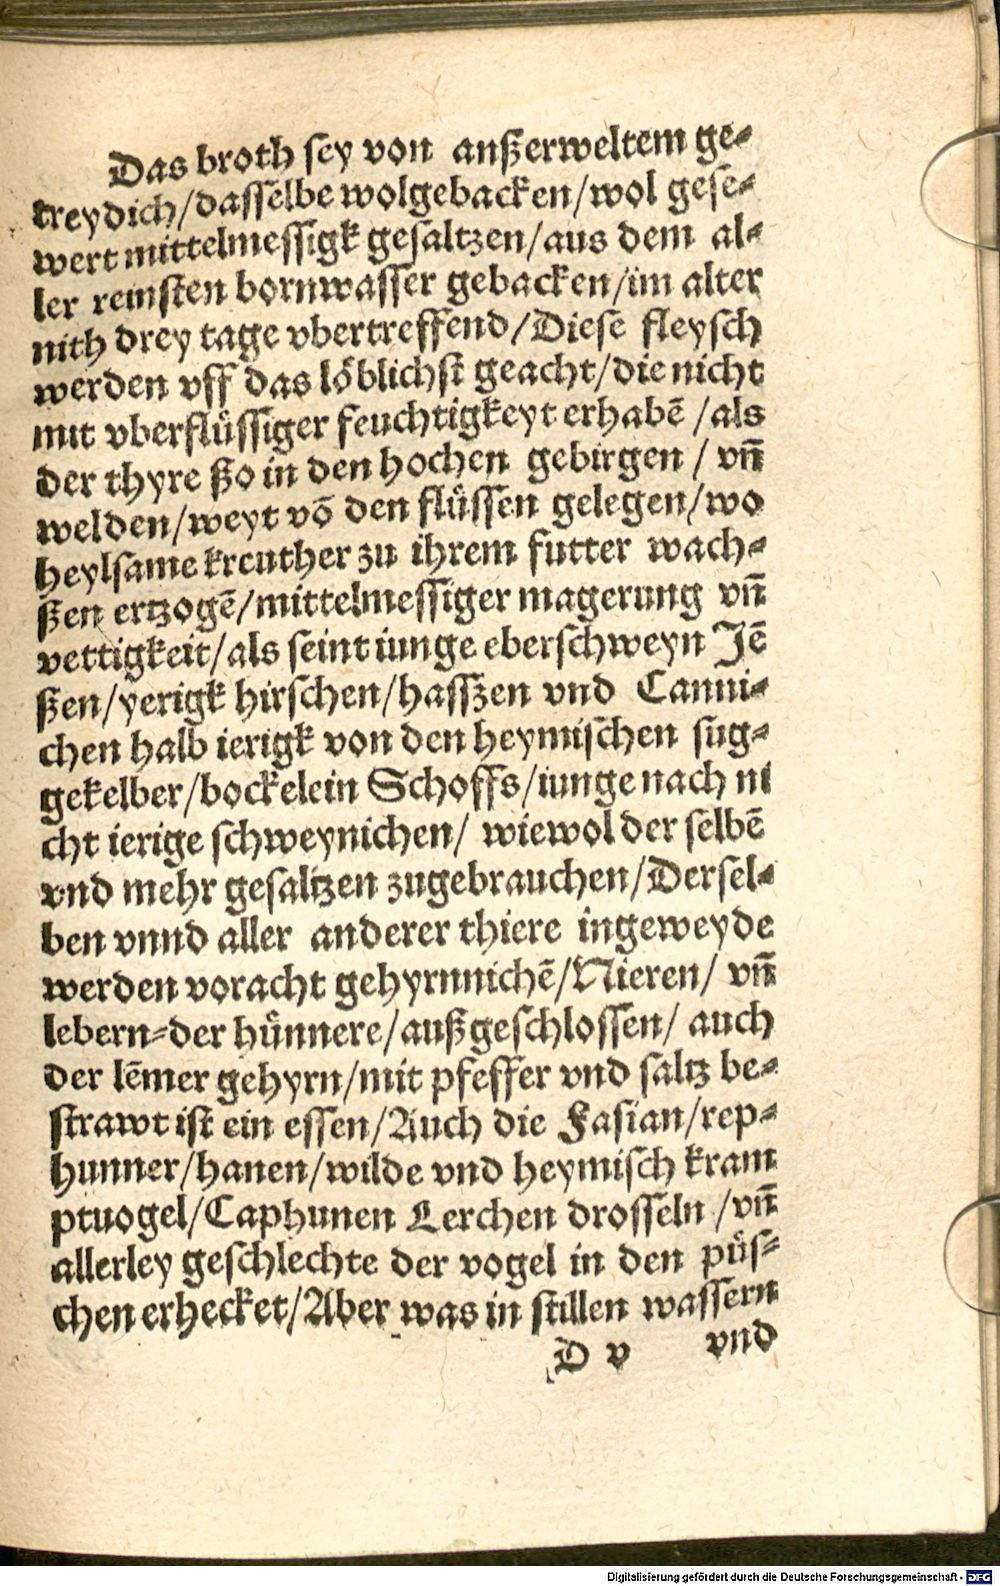 Das broth sey von außerweltem ge-
treydich/dasselbe wolgebacken/wol gese-
wert mittelmessigk gesaltzen/aus dem al-
ler reinsten bornwasser gebacken/im alter
nith drey tage vbertreffend/Diese fleysch
werden vff das löblichst geacht/die nicht
mit vberflůssiger feuchtigkeyt erhabē/als
der thyre ßo in den hochen gebirgen/vn̄
welden/weyt vō den flůssen gelegen/wo
heylsame kreuther zu ihrem futter wach-
ßen ertzogē/mittelmessiger magerung vn̄
vettigkeit/als seint iunge eberschweyn Jē
ßen/yerigk hirschen/hasszen vnd Canni-
chen halb ierigk von den heymischen sug-
gekelber/bockelein Schoffs/iunge nach ni
cht ierige schweynichen/ wiewol der selbē
vnd mehr gesaltzen zugebrauchen/Dersel-
ben vnnd aller anderer thiere ingeweyde
werden voracht gehyrnnichē/Nieren/ vn̄
lebern-der hůnnere/außgeschlossen/ auch
der lēmer gehyrn/mit pfeffer vnd saltz be-
strawt ist ein essen/Auch die Fasian/rep-
hunner/hanen/wilde vnd heymisch kram
ptuogel/Caphunen Lerchen drosseln/vn̄
allerley geschlechte der vogel in den půs-
chen erhecket/Aber was in stillen wassern
D v vnd
Digitalisierung gefördert durch die Deutsche Forschungsgemeinschaft - DFG